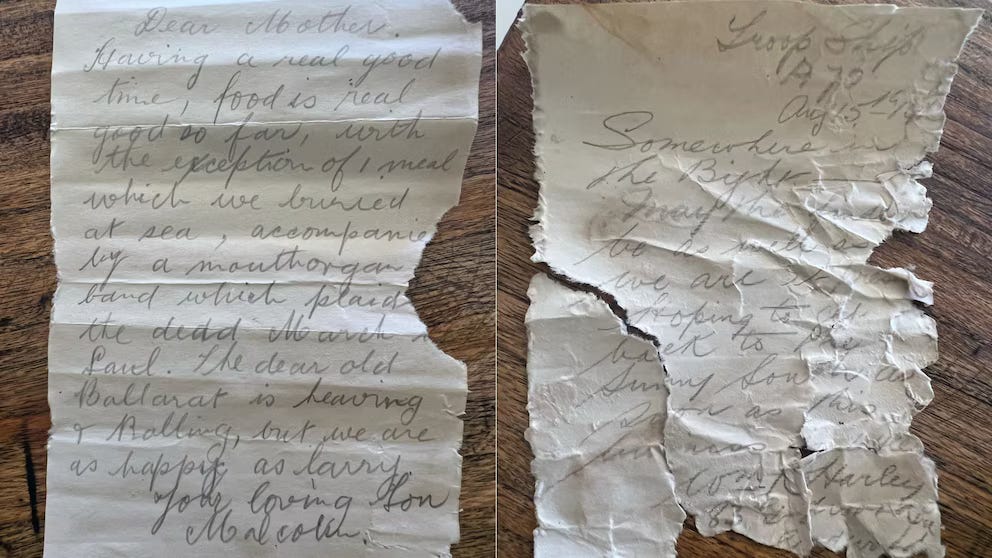 Dear Mother.
Having a real good
time, food is real
good so far, with
the exception of 1 meal
which we buried
at sea, accompanie
by a mouthorgan
band which plaid
the dead March
Saul. The dear old
Ballarat is heaving
& Rolling, but we are
as happy as larry.
Your loving Son
Malcolm.
Troop Ship
A 70
Aug 15-19
Somewhere in
the Bight
May the
be as well
we are
Hoping to
back to the
Sunny
soon as this
Harley